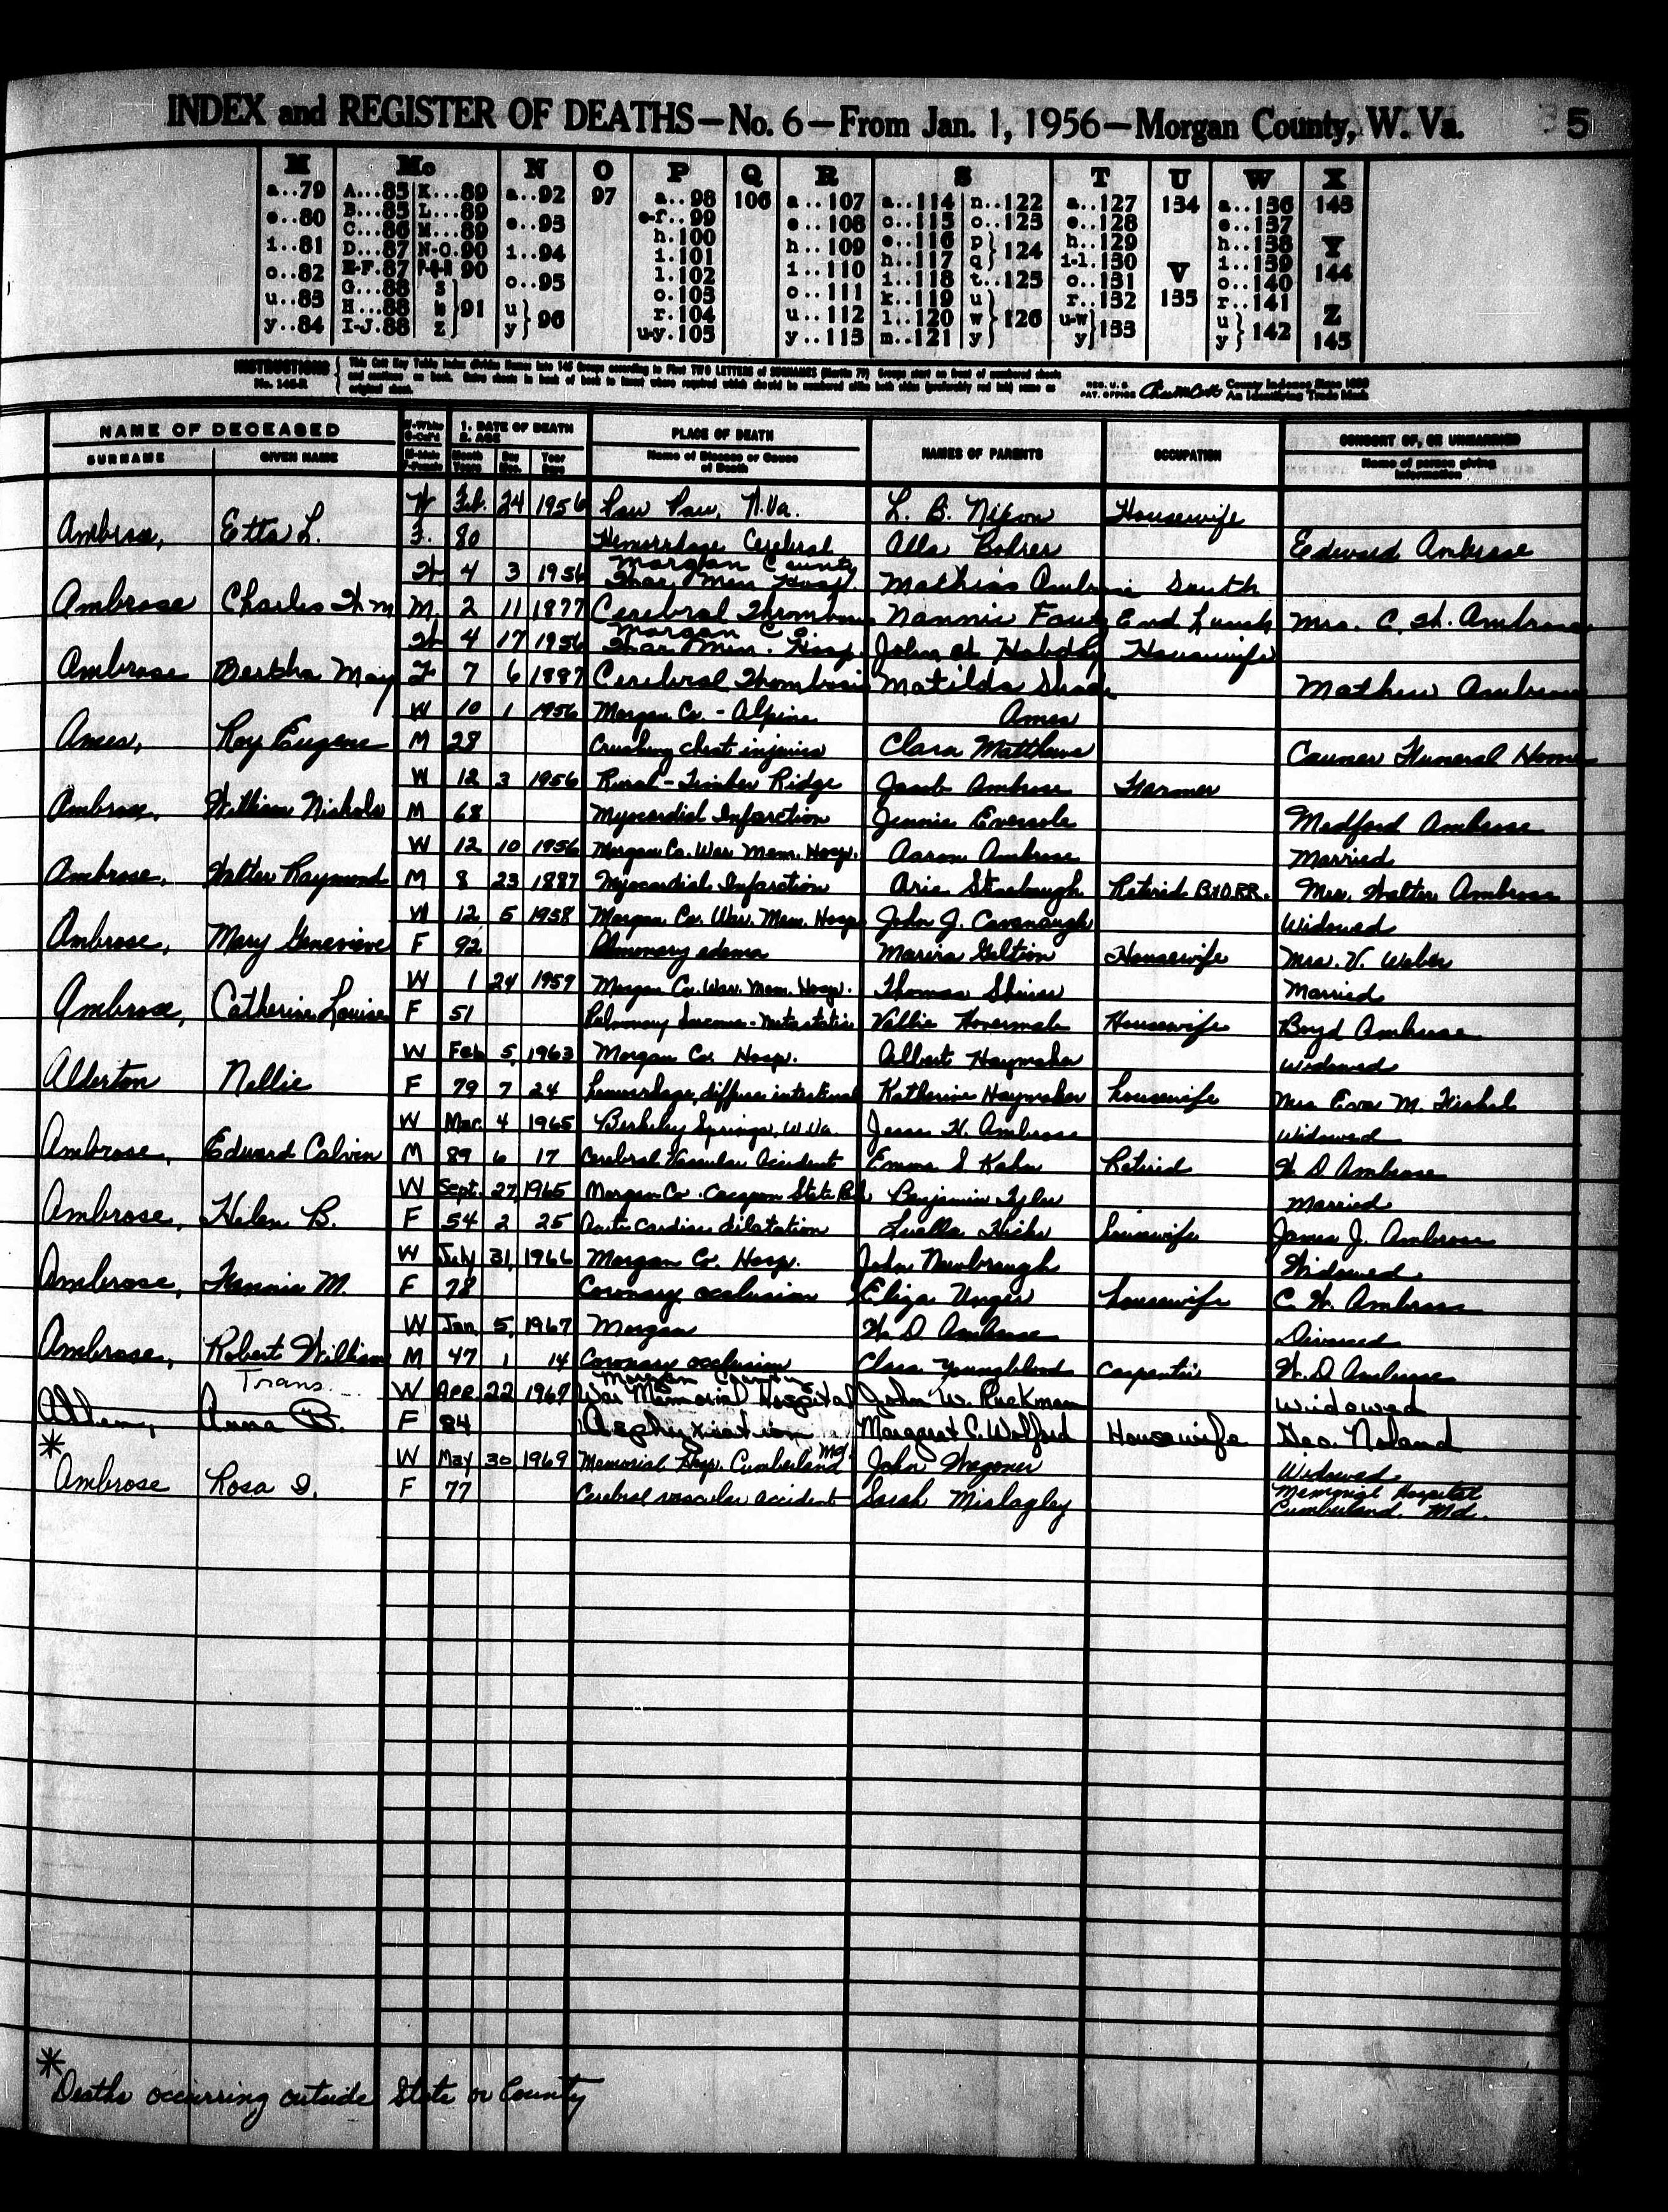 INDEX and REGISTER OF DEATHS—No. 6—From Jan. 1, 1956—Morgan County, W. Va. 5
M Mc N O P Q R S T U W X
a...79 A...85 K...89 a...92 97 a...98 106 a...107 a...114 n...122 a...127 134 a...136 143
e...80 B...85 L...89 e...93 e-f...99 e...108 c...115 o...123 e...128 e...137
i...81 C...86 M...89 i...94 h.100 h...109 e...116 p} q} 124 h...129 h...138 Y
o...82 D...87 N-O.90 o...95 i.101 i...110 h...117 t...125 i-l.130 V i...139 144
u...83 E-F.87 P-Q-R 90 u} y} 96 l.102 o...111 i...118 u} w} y} 126 o...131 135 o...140
y...84 G...88 S} Z} 91 o.103 u...112 k...119 r...132 r...141 Z
H...88 r.104 y...113 l...120 u-w} y} 133 u} y} 142 145
I-J.88 u-y.105 m...121
INSTRUCTIONS
No. 145-R
original sheet.
REG. U. S. PAT. OFFICE
County Indexes Since 1888
An Identifying Trade Mark
NAME OF DECEASED 1. DATE OF DEATH 2. AGE PLACE OF DEATH NAMES OF PARENTS OCCUPATION CONSORT OF, OR UNMARRIED
SURNAME GIVEN NAME Month Years Day Mos. Year Days Name of Disease or Cause of Death Name of person giving information
W Feb. 24 1956 Paw Paw, W.Va. L. B. Nixon Housewife
Ambrose, Etta L. F. 80 Hemorrhage Cerebral Alla Bohrer Edward Ambrose
W 4 3 1956 Morgan County War Mem Hosp. Mathias Ambrose South
Ambrose Charles Wm M. 2 11 1877 Cerebral Thrombosis Nannie End Lunch Mrs. C. W. Ambrose
W 4 17 1956 Morgan Co. War Mem. Hosp. John H Hobday Housewife
Ambrose Bertha May F 7 6 1887 Cerebral Thombosis Matilda Mathew Ambrose
W 10 1 1956 Morgan Co. - Alpine Ames
Ames, Roy Eugene M 28 Crushing chest injuries Clara Matthews Funeral Home
W 12 3 1956 Rural - Timber Ridge Jacob Ambrose Farmer
Ambrose, William Nichols M 68 Myocardial Infarction Jennie Eversole Medford Ambrose
W 12 10 1956 Morgan Co. War Mem. Hosp. Aaron Ambrose Married
Ambrose, Walter Raymond M 8 23 1887 Myocardial Infarction Arie Retired B&O.RR. Mrs. Walter Ambrose
W 12 5 1958 Morgan Co. War. Mem. Hosp John J. Cavanaugh Widowed
Ambrose, Mary Genevieve F 92 Pulmonary edema Housewife Mrs. V. Weber
W 1 24 1959 Morgan Co. War. Mem. Hosp. Thomas Shriver Married
Ambrose, Catherine Louise F 51 Housewife Boyd Ambrose
W Feb 5, 1963 Morgan Co. Hosp. Albert Haymaker Widowed
Alderton Nellie F 79 7 24 hemorrhage, diffuse intestinal Katherine Haymaker housewife Mrs Eva M.
W Mar. 4 1965 Berkeley Springs, W.Va. Jesse H. Ambrose Widowed
Ambrose, Edward Calvin M 89 6 17 Cerebral Vascular Accident Emma S Kahn Retired W D Ambrose
W Sept. 27, 1965 Morgan Co. Cacapon State Park Benjamin Tyler Married
Ambrose, Helen B. F 54 2 25 Acute cardiac dilatation Luella Hicks housewife James J. Ambrose
W July 31, 1966 Morgan Co. Hosp. John Newbraugh Widowed
Ambrose, Fannie M. F 78 Coronary occlusion Eliza Unger housewife C. W. Ambrose
W Jan. 5, 1967 Morgan W. D Ambrose Divorced
Ambrose, Robert William M 47 1 14 Coronary occlusion Clara Youngblood Carpenter W. D Ambrose
Trans. W Apr. 22 1969 Morgan County War Memorial Hospital John W. Ruckman widowed
Allen, Anna B. F 84 Asphyxiation Margaret C. Wolford Housewife Geo. Noland
* W May 30, 1969 Memorial Hosp. Cumberland Md. John Wagoner Widowed
Ambrose Rosa I. F 77 Cerebral vascular accident Sarah Memorial Hospital Cumberland, Md.
* Deaths occurring outside State or County